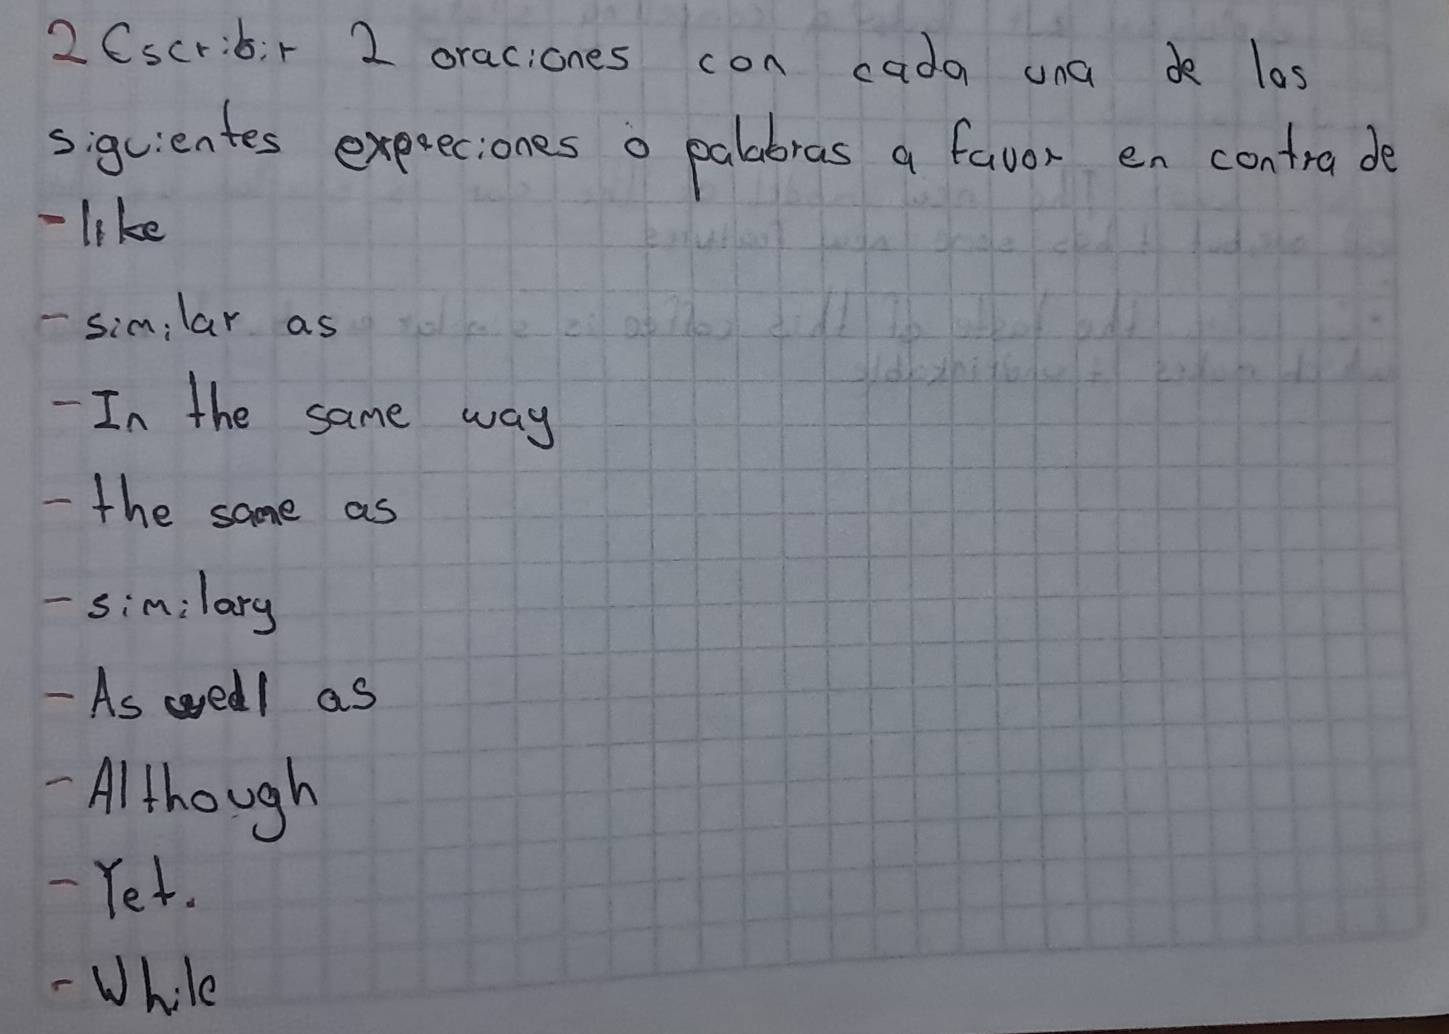 2 Escribir 2 oraciones con cada una de las
siguientes expreciones o palabras a favor en contra de
- like
- similar as
- In the same way
- the same as
- similary
- As well as
- Although
- Yet.
- While